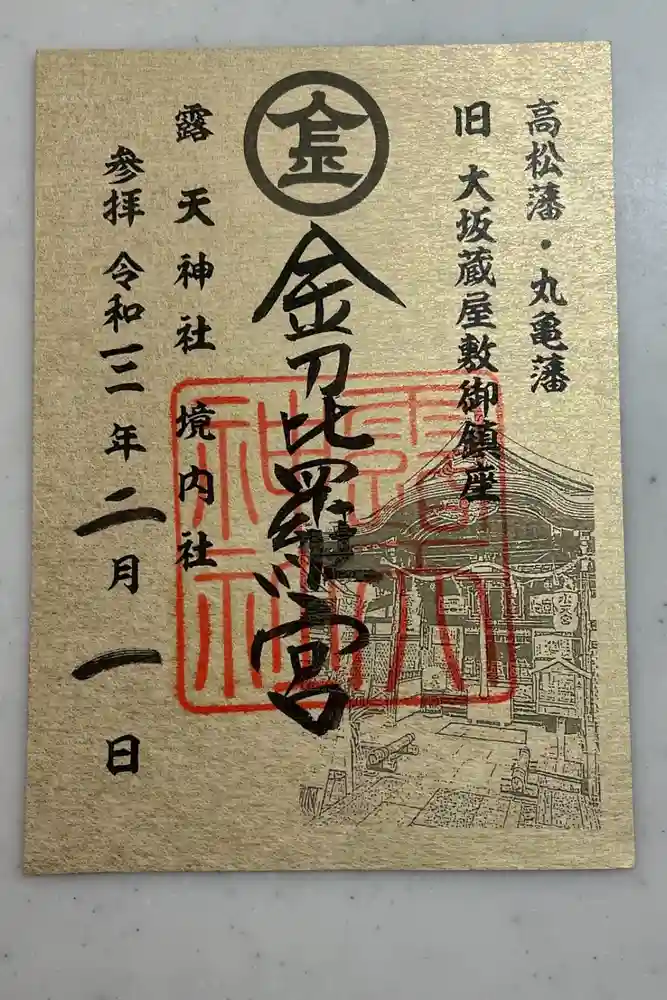 高松藩・丸亀藩
旧 大坂蔵屋敷御鎮座
金
金刀比羅宮
露天神社
露 天神社 境内社
参拝 令和三年二月一日
水天宮